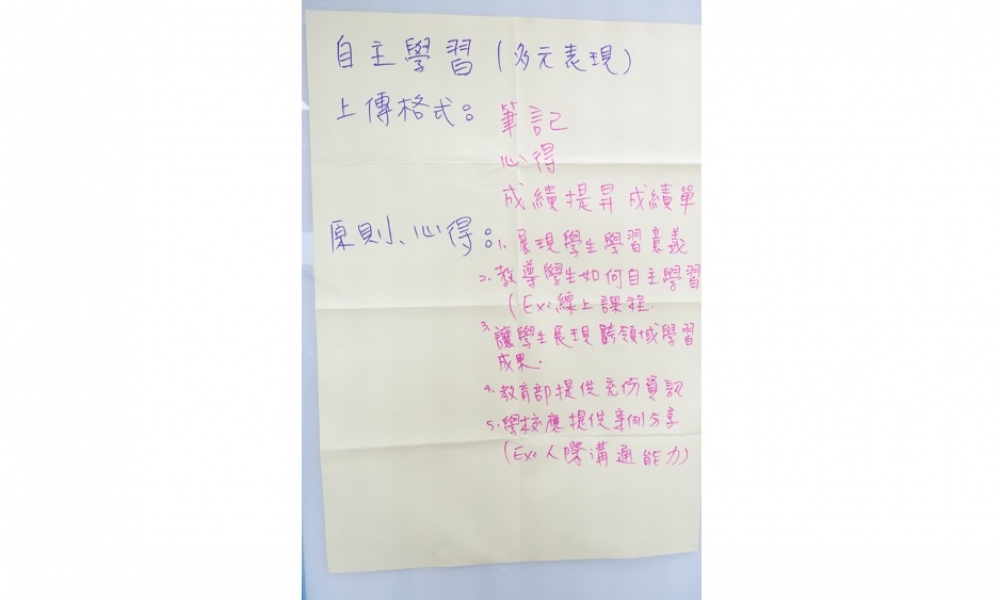 自主學習(多元表現)
上傳格式：筆記
心得
成績提昇 成績單
原則、心得：1. 展現學生學習意義
2. 教導學生如何自主學習
(Ex: 線上課程.
3. 讓學生展現跨領域學習
成果.
4. 教育部提供充份資訊
5. 學校應提供案例分享
(Ex: 人際溝通能力)